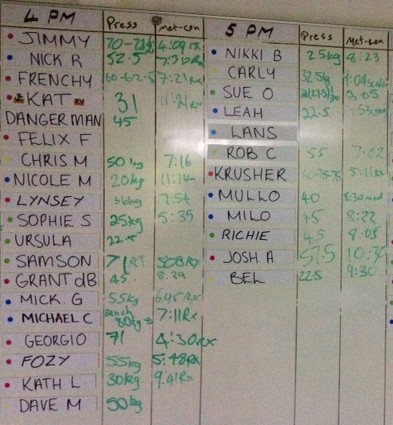 4 PM Press Met-con
JIMMY 4:09rx
NICK.R 52.5
FRENCHY 7:21Rx
KAT 31
DANGERMAN 45
FELIX F
CHRIS M 50kg 7:16
NICOLE M 20kg 11:14
LYNSEY 7:54
SOPHIE S 25kg 5:35
URSULA 22.5
SAMSON 71
GRANT dB 45 8:29
MICK.G 55kg 6:45Rx
MICHAEL C Bench 80kg 7:11Rx
GEORGIO 71 4:30rx
FOZY 55kg 5:48Rx
KATH L 30kg 9:41Rx
DAVE M 50kg
5 PM Press Met-con
NIKKI B 25kg 8:23
CARLY 32.5kg
SUE O
LEAH 22.5
LANS
ROB C 55 7:02
KRUSHER
MULLO 40 8:30
MILO 45 8:22
RICHIE 45 9:05
JOSH A 57.5 10:30
BEL 22.5 9:30